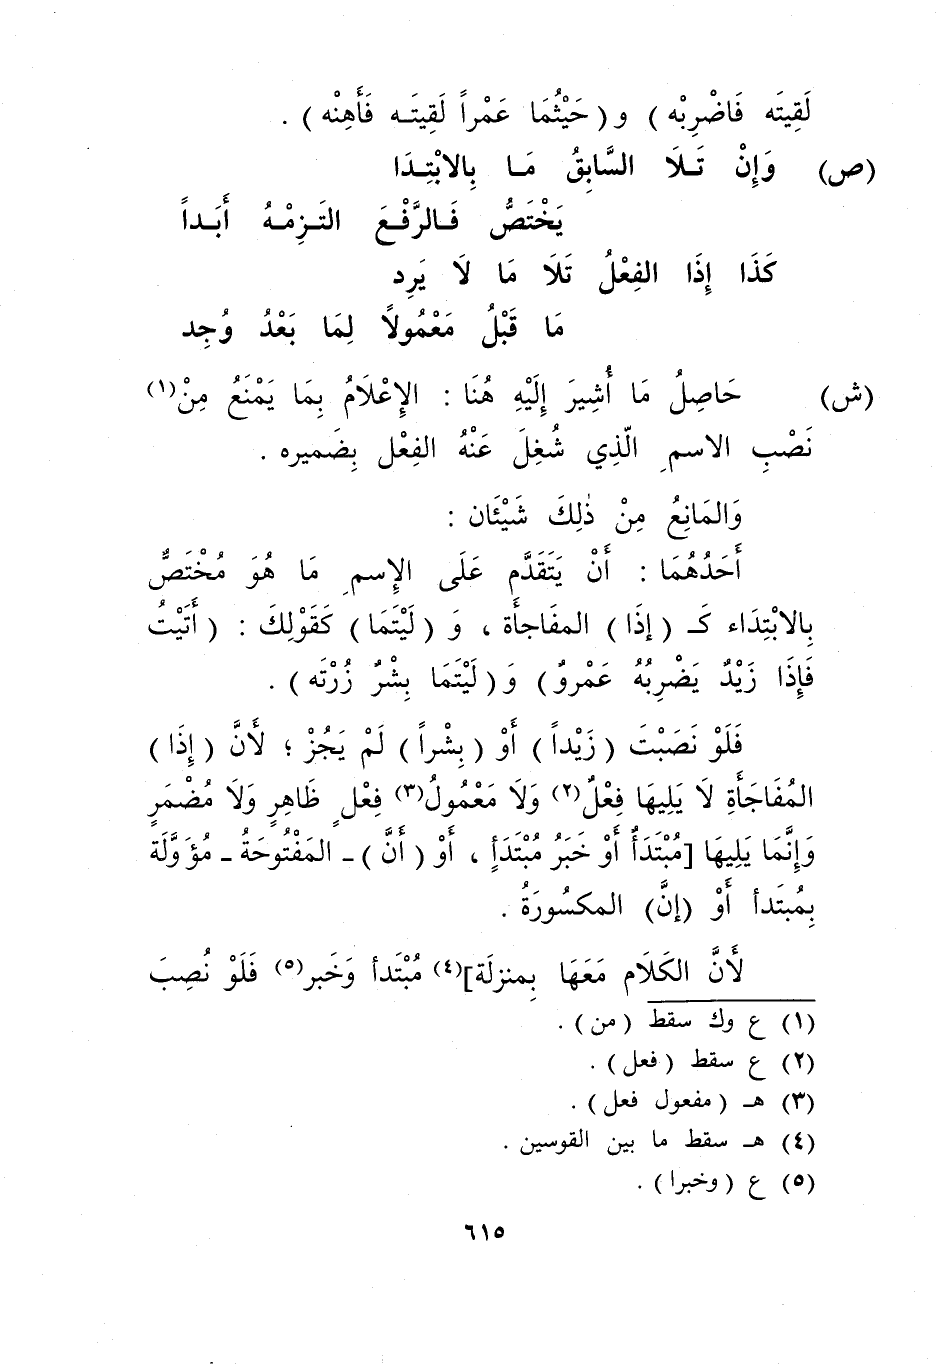 لَقِيتَه فَاضْرِبْه ) و ( حَيْثُمَا عَمْراً لَقِيتَـه فَأَهِنْه ) .
(ص) وَإِنْ تَـلَا السَّابِقُ مَـا بِالابْتِـدَا
يَخْتَصُّ فَـالرَّفْـعَ التَـزِمْـهُ أَبَـداً
كَذَا إِذَا الفِعْلُ تَلَا مَا لَا يَرِد
مَا قَبْلُ مَعْمُولاً لِمَا بَعْدُ وُجِد
(ش) حَاصِلُ مَا أُشِيرَ إِلَيْهِ هُنَا : الإِعْلَامُ بِمَا يَمْنَعُ مِنْ(١)
نَصْبِ الاسمِ الّذِي شُغِلَ عَنْهُ الفِعْل بِضَميره .
وَالمَانِعُ مِنْ ذٰلِكَ شَيْئَان :
أَحَدُهُمَا : أَنْ يَتَقَدَّم عَلَى الإِسمِ مَا هُوَ مُخْتَصٌّ
بِالابْتِدَاء كَـ ( إذَا ) المفَاجأَة ، وَ ( لَيْتَمَا ) كَقَوْلِكَ : ( أَتَيْتُ
فَإِذَا زَيْدٌ يَضْرِبُهُ عَمْروٌ ) وَ ( لَيْتَمَا بِشْرٌ زُرْتَه ) .
فَلَوْ نَصَبْتَ ( زَيْداً ) أَوْ ( بِشْراً ) لَمْ يَجُزْ ؛ لَأنَّ ( إِذَا )
المُفَاجَأَةِ لَا يَلِيهَا فِعْلٌ(٢) وَلَا مَعْمُولُ(٣) فِعْلٍ ظَاهِرٍ وَلَا مُضْمَرٍ
وَإِنَّمَا يَلِيهَا [مُبْتَدَأٌ أَوْ خَبَرُ مُبْتَدَأٍ ، أَوْ ( أَنَّ ) ـ المَفْتُوحَةُ ـ مُؤَوَّلَة
بِمُبتَدأ أَوْ (إنَّ) المكسُورَةُ .
لَأنَّ الكَلَام مَعَهَا بِمنزلَة](٤) مُبْتَدأ وَخَبر(٥) فَلَوْ نُصِبَ
(١) ع وك سقط ( من ) .
(٢) ع سقط ( فعل ) .
(٣) هـ ( مفعول فعل ) .
(٤) هـ سقط ما بين القوسين .
(٥) ع ( وخبرا ) .
٦١٥